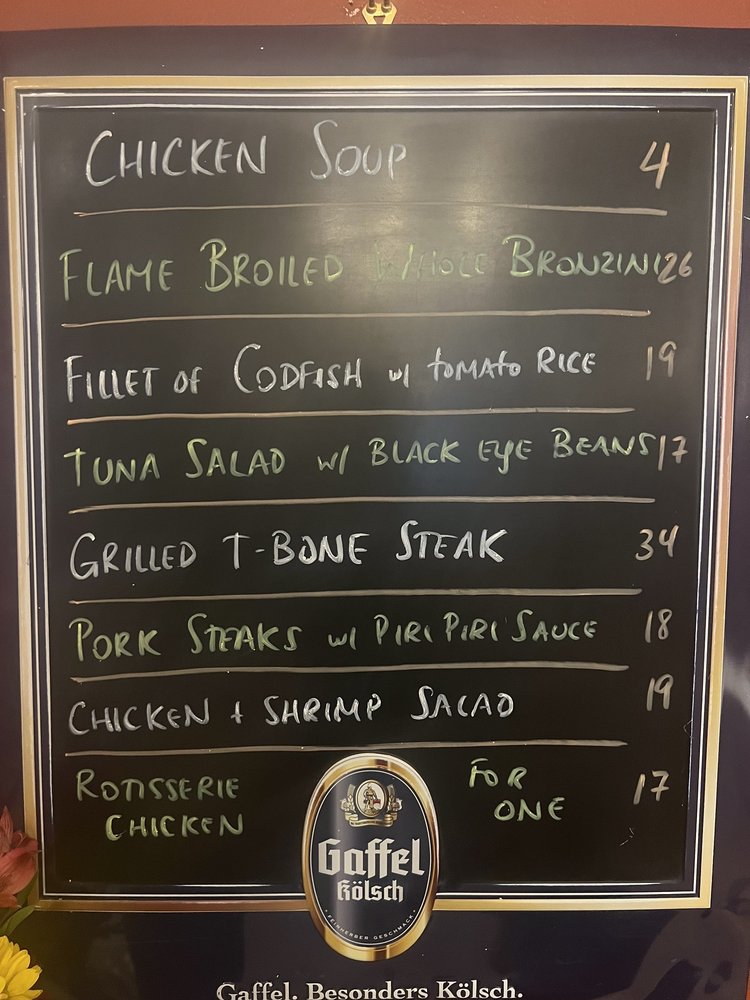 CHICKEN SOUP 4
FLAME BROILED WHOLE BRONZINI 26
FILLET OF CODFISH w/ TOMATO RICE 19
TUNA SALAD w/ BLACK EYE BEANS 17
GRILLED T-BONE STEAK 34
PORK STEAKS w/ PIRI PIRI SAUCE 18
CHICKEN + SHRIMP SALAD 19
ROTISSERIE FOR 17
CHICKEN ONE
Gaffel
Kölsch
FEINHERBER GESCHMACK
Gaffel. Besonders Kölsch.